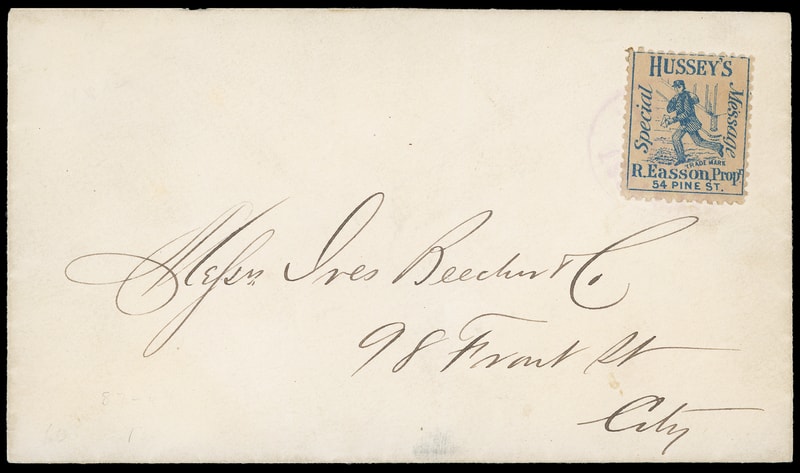 HUSSEY'S
Special
Message
TRADE MARK
R. Easson, Propr
54 PINE ST.
Messrs Ives Beecher & Co.
98 Front St
City